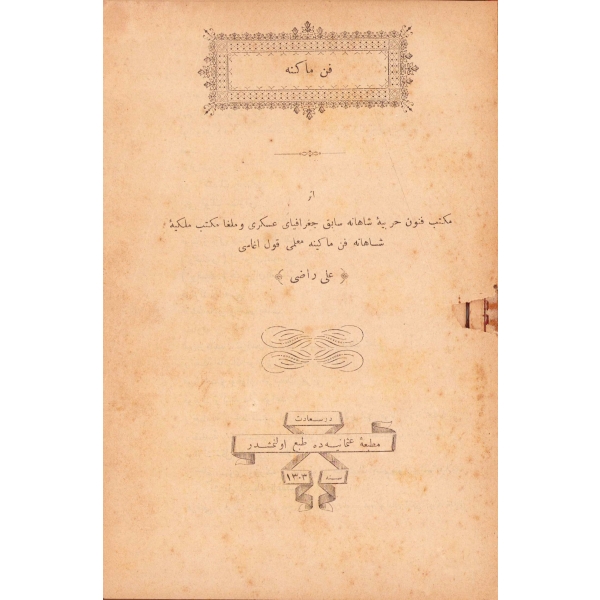 فن ماكنه
از
مكتب فنون حربیۀ شاهانه سابق جغرافیای عسكری و ملغا مكتب ملكیۀ
شاهانه فن ماكینه معلمی قول اغاسی
﴿ علی راضی ﴾
درسعادت
مطبعۀ عثمانیه ده طبع اولنمشدر
سنه ١٣٠٣